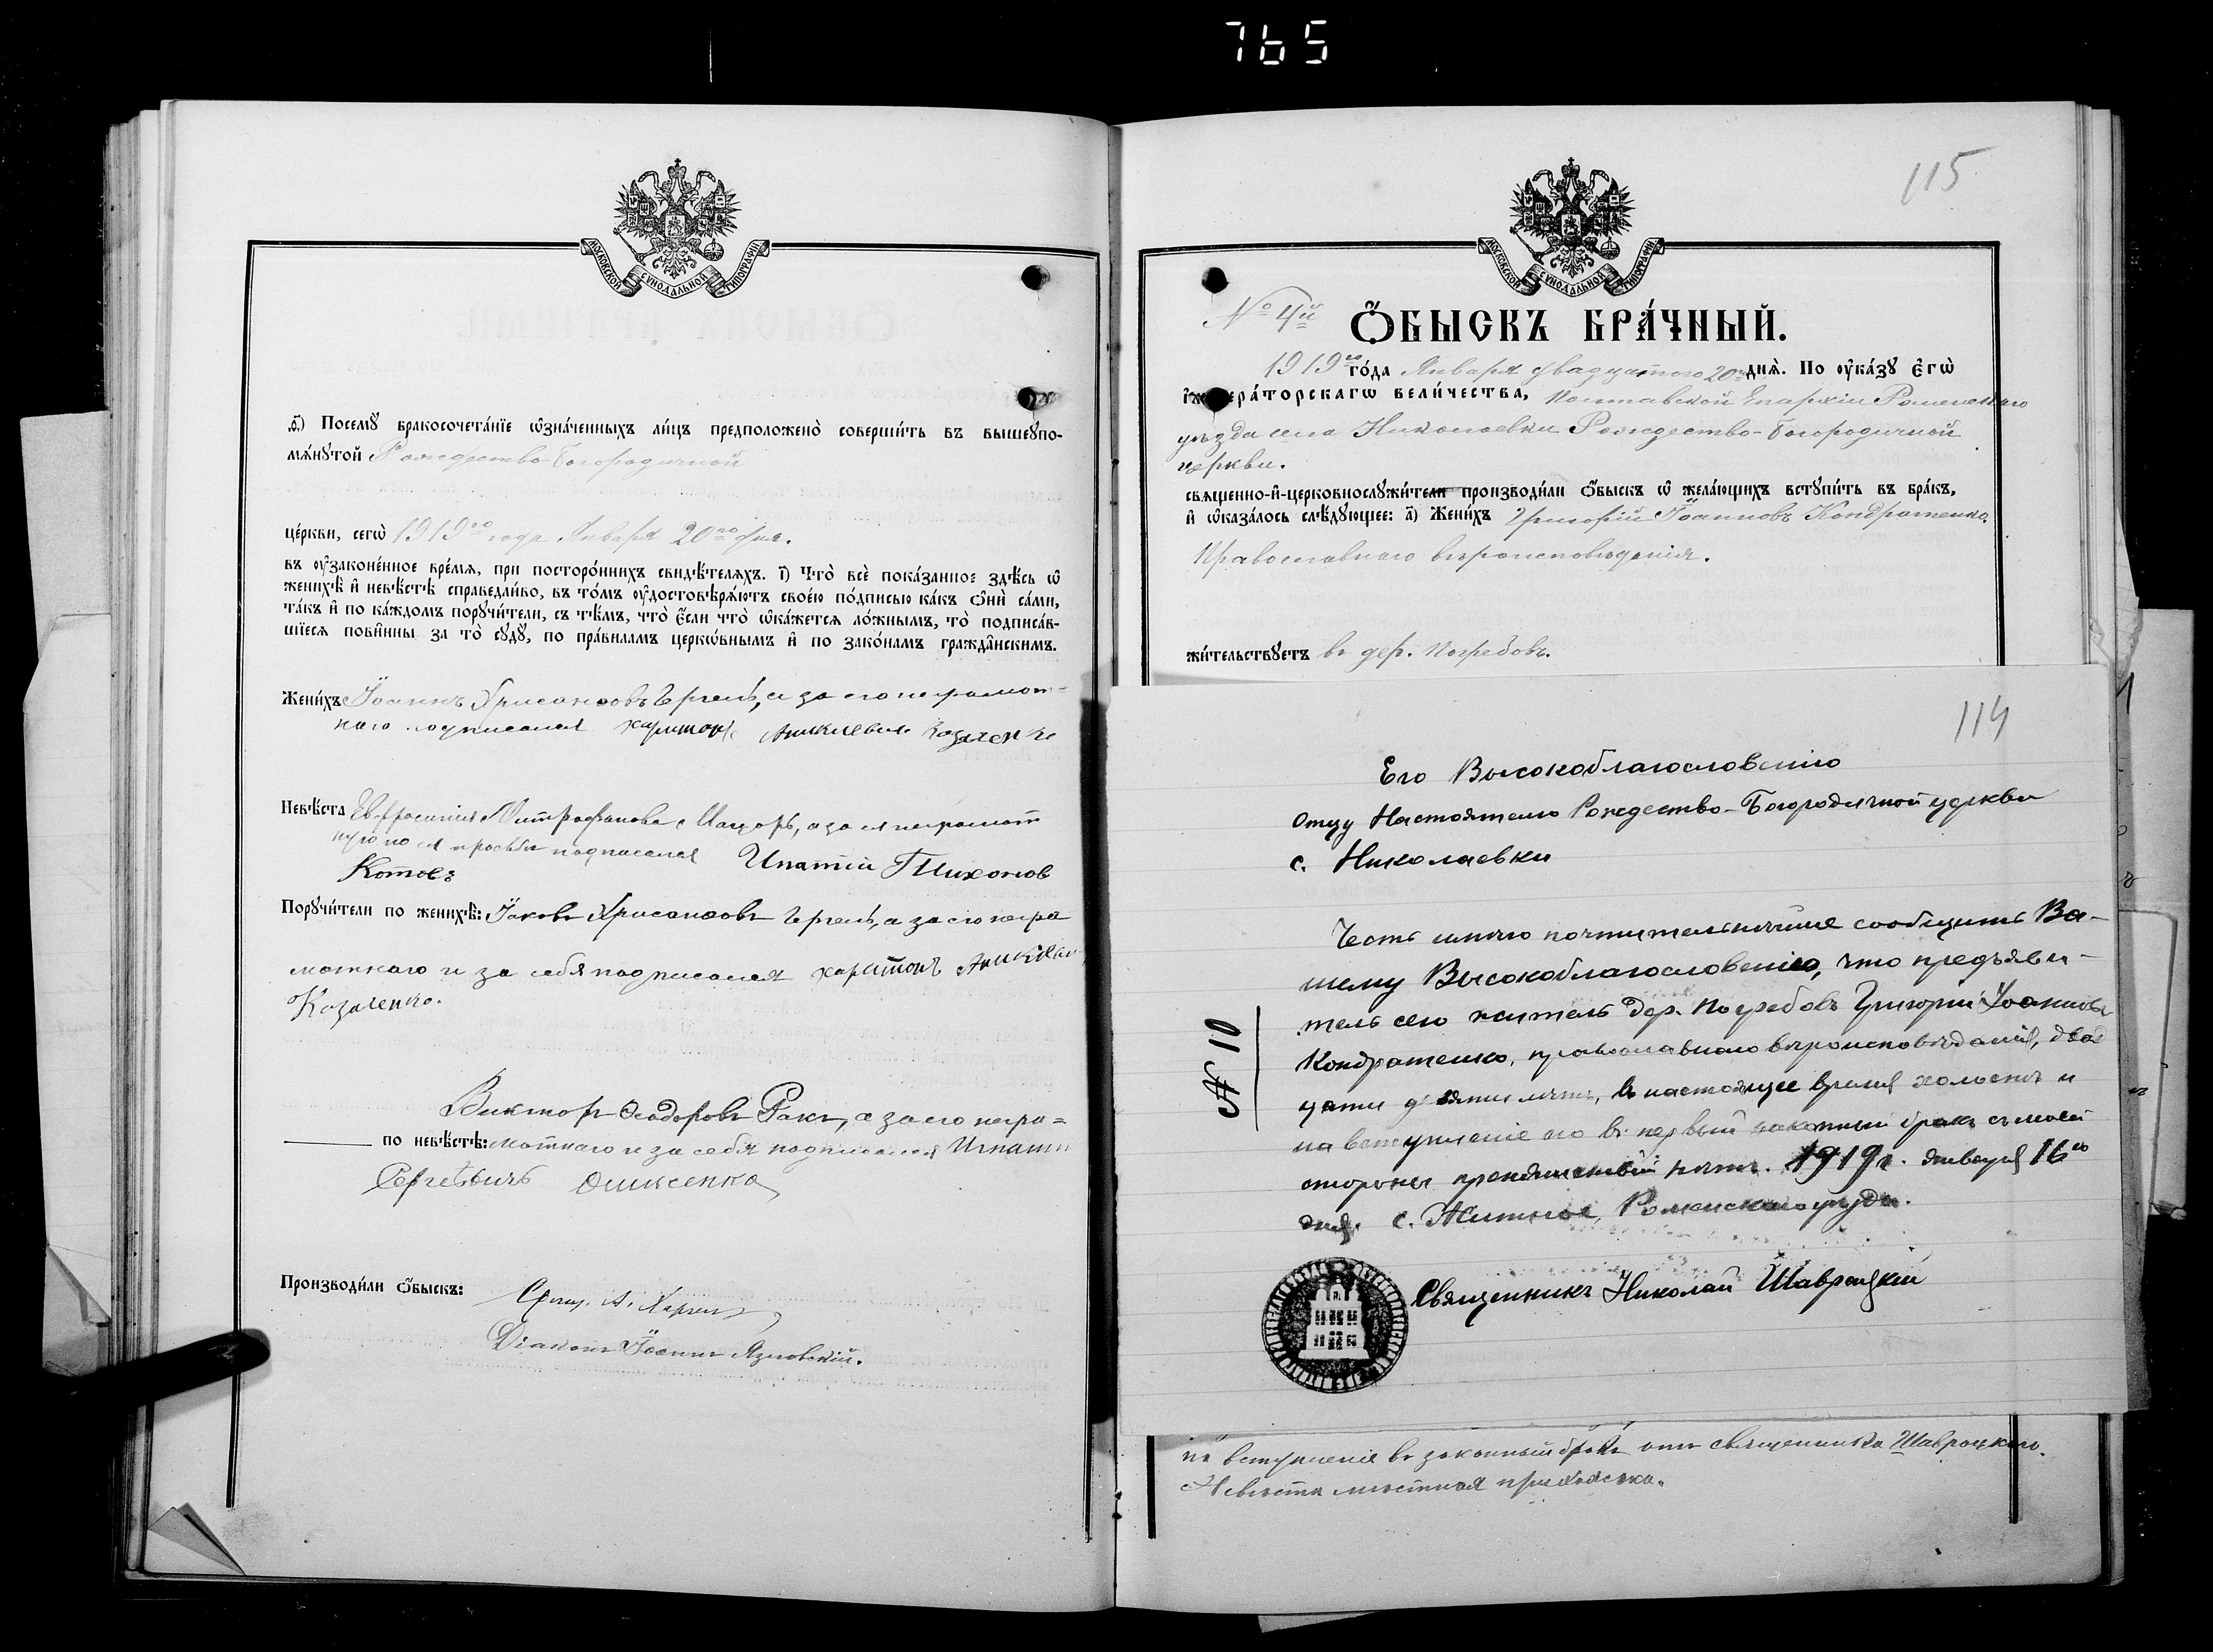 765
МОСКОВСКОЙ СѴНОДАЛЬНОЙ ТИПОГРАФІИ
ѳ҃.) Посемꙋ̀ бракосочета́нїе ѡ҆зна́ченныхъ ли́цъ предположено̀ соверши́ть въ вышеꙋпо-
мѧ́нꙋтой Рождество-Богородичной
це́ркви, сегѡ̀ 1919го года Января 20го дня.
въ ᲂу҆законе́нное вре́мѧ, при посторо́ннихъ свидѣ́телѧхъ. і҃) Что̀ всѐ пока́занное здѣ́сь ѡ҆
женихѣ̀ и҆ невѣ́стѣ справедли́во, въ то́мъ ᲂу҆достовѣрѧ́ютъ свое́ю по́дписью ка́къ ѻ҆нѝ са́ми,
та́къ и҆ по ка́ждомъ порꙋчи́тели, съ тѣ́мъ, что̀ є҆́сли что̀ ѡ҆ка́жетсѧ ло́жнымъ, то̀ подписа́в-
шїесѧ пови́нны за то̀ сꙋдꙋ̀, по пра́виламъ церко́внымъ и҆ по зако́намъ гражда́нскимъ.
Жени́хъ Іоаннъ Хрисанфовъ Гргель, а за его неграмот-
наго подписался Харитонъ Аникиевичъ Козаченко
Невѣ́ста Евфросинія Митрофанова Мацоръ, а за ея неграмот
ную по ея просьбѣ подписался Ипатій Тихонов
Котовъ
Порꙋчи́тели по женихѣ̀: Іаковъ Хрисанфовъ Гргель, а за его негра
мотнаго и за себя подписался Харитонъ Аникіеви
Козаченко.
Викторъ Ѳеодоровъ Ракъ, а за его негра=
по невѣ́стѣ: мотнаго и за себя подписался Игнатій
Сергѣевичъ Ониксенко
Производи́ли ѻ҆́быскъ: Свящ. А.
Діаконъ Іоаннъ Язловскій.
115
МОСКОВСКОЙ СѴНОДАЛЬНОЙ ТИПОГРАФІИ
№ 4й
Ѻ҆́БЫСКЪ БРА́ЧНЫЙ.
1919го го́да Января двадцатого 20го днѧ̀. По ᲂу҆ка́зꙋ є҆гѡ̀
і҆мпера́торскагѡ вели́чества, Полтавской Епархіи Роменскаго
уѣзда села Николаевки Рождество-Богородичной
церкви.
свѧщенно-и҆-церковнослꙋжи́тели производи́ли ѻ҆́быскъ ѡ҆ жела́ющихъ встꙋпи́ть въ бра́къ,
и҆ ѡ҆каза́лось слѣ́дꙋющее: а҃) Жени́хъ Григорій Іоанновъ Кондратенко.
Православнаго вѣроисповѣданія.
жи́тельствꙋетъ въ дер. Погребовъ.
114
Его Высокоблагословенію
Отцу Настоятелю Рождество-Богородичной церкви
с. Николаевки
Честь имѣю почтительнѣйше сообщить Ва-
шему Высокоблагословенію, что предъяви-
тель сего житель дер. Погребовъ Григорій Іоанновъ
Кондратенко, православнаго вѣроисповѣданія, двад
цати девяти лѣтъ, въ настоящее время холостъ и
на вступленіе его въ первый законный бракъ съ моей
стороны препятствій нѣтъ. 1919 г. января 16го
дня. С. Житное, Роменскаго уѣзда.
№ 10
Священникъ Николай Шавроцкій
на вступленія въ законный бракъ отъ священника Шавроцкаго.
Невѣста мѣстная прихожанка.